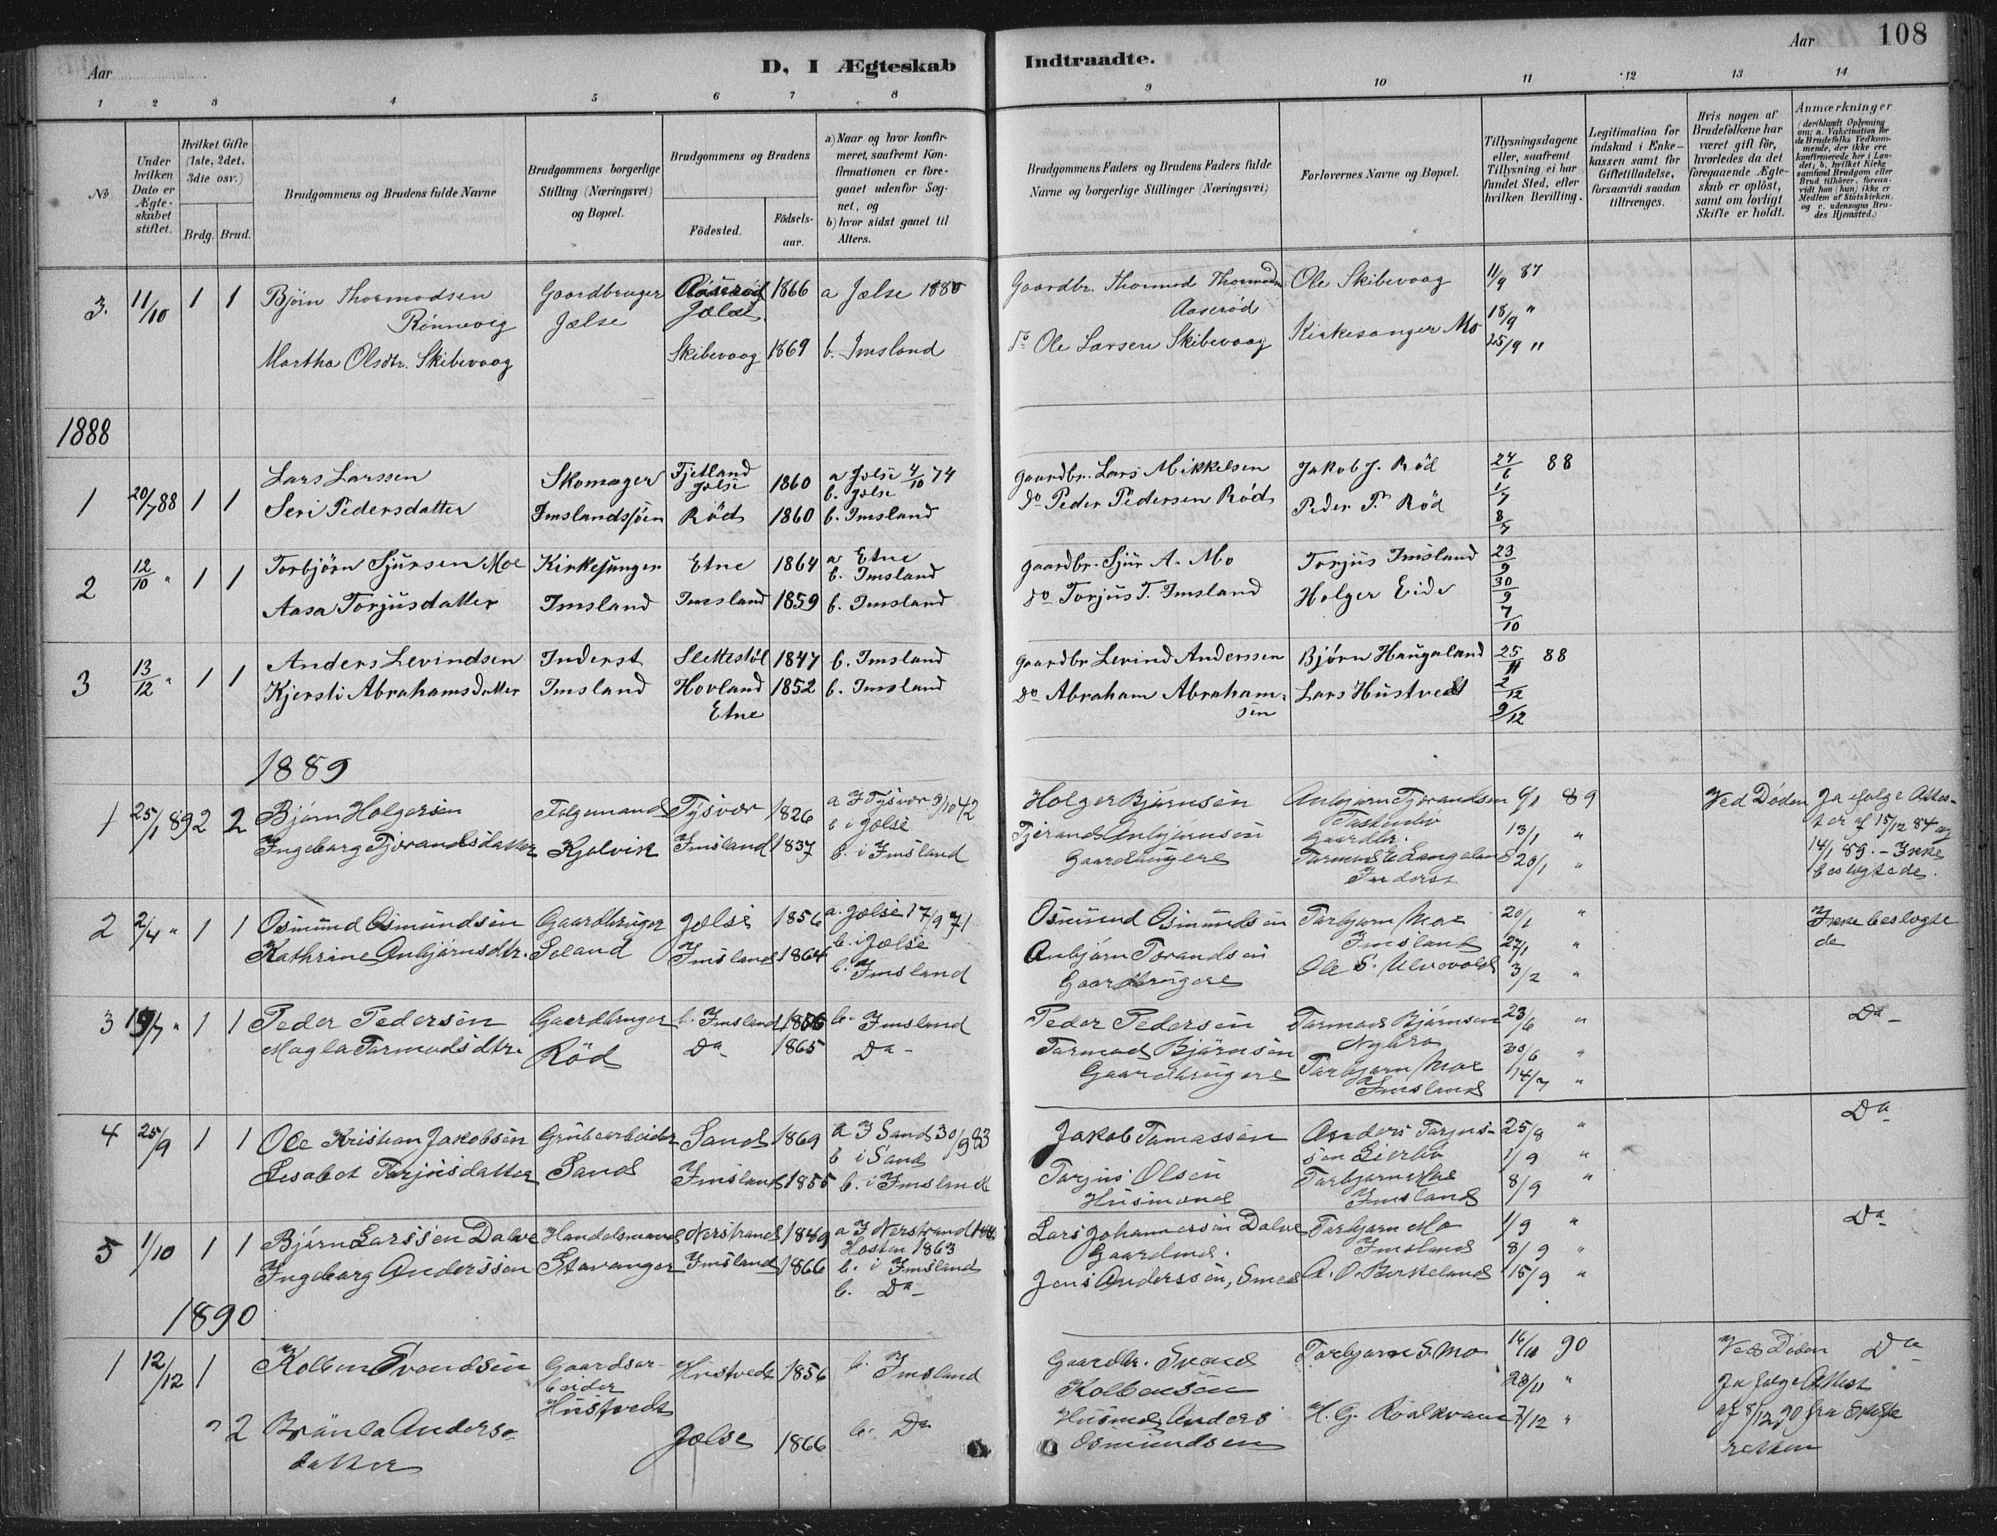 108
Aar
D, I Ægteskab
Indtraadte.
Aar
1 2 3 4 5 6 7 8 9 10 11 12 13 14
No
Under hvilken Dato er Ægteskabet stiftet.
Hvilket Gifte (1ste, 2det, 3die osv.)
Brdg. Brud.
Brudgommens og Brudens fulde Navne
Brudgommens borgerlige Stilling (Næringsvei) og Bopæl.
Brudgommens og Brudens
Fødested.
Fødselsaar.
a) Naar og hvor konfirmeret, saafremt Konfirmationen er foregaaet udenfor Sognet, og
b) hvor sidst gaaet til Alters.
Brudgommens Faders og Brudens Faders fulde Navne og borgerlige Stillinger (Næringsvei)
Forlovernes Navne og Bopæl.
Tillysningsdagene eller, saafremt Tillysning ei har fundet Sted, efter hvilken Bevilling.
Legitimation for Indskud i Enkekassen samt for Giftetilladelse, forsaavidt saadan tiltrænges.
Hvis nogen af Brudefolkene har været gift før, hvorledes da det foregaaende Ægteskab er opløst, samt om lovligt Skifte er holdt.
Anmærkninger
3. 11/10 1 1 Bjørn Thormodsen Rønnevig Gaardbruger Jælse Aaserød Jælse 1866 a Jælse 1880 Gaardbr. Thormod Thormods Aaserød Ole Skibevaag 11/9 87
Martha Olsdtr. Skibevaag Skibevaag 1869 b. Imsland do Ole Larsen Skibevaag Kirkesanger Mo 18/9 " 25/9 "
1888
1 20/7 88 1 1 Lars Larssen Skomager Tjetland Jelse 1860 a Jelse 4/10 74 b. Jelse gaardbr. Lars Mikkelsen Jakob J. Rød 24/6 88
Seri Pedersdatter Imslandsjøen Rød 1860 b. Imsland do Peder Pedersen Rød Peder P. Rød 1/7 8/7
2 12/10 " 1 1 Torbjørn Sjursen Moe Kirkesanger Etne 1864 a Etne b. Imsland gaardbr. Sjur A. Mo Torjus Imsland 23/9
Aasa Torjusdatter Imsland Imsland 1859 b. Imsland do Torjus T. Imsland Holger Eide 30/9 7/10
3 13/12 " 1 1 Anders Levindsen Inderst Slettestøl 1847 b. Imsland gaardbr Levind Anderssen Bjørn Haugaland 25/11 88
Kjersti Abrahamsdatter Imsland Hovland Etne 1852 b. Imsland do Abraham Abrahamsen Lars Hustvedt 2/12 9/12
1889
1 25/1 89 2 2 Bjørn Holgersen Følgemand Tysvær 1826 a I Tysvær 9/10 42 b i Jelse Holger Bjørnsen Anbjørn Tjørandsen Gaardbr. 6/1 89 Ved Døden Ja ifølge Attester af 15/12 84 og 14/1 89. - Ikke beslægtede.
Ingeborg Tjørandsdatter Kjølvik Imsland 1837 b. i Imsland Tjørand Anbjørnsen Gaardbrugere Tormod E Langeland Inderst 13/1 " 20/1 "
2 2/4 " 1 1 Osmund Osmundsen Gaardbruger Jelse 1856 a. Jelse 17/9 71 b. i Jælse Osmund Osmundsen Torbjørn Moe Imsland 20/1 " Ikke beslægtede
Kathrine Anbjørnsdtr. Søland Imsland 1864 b. Imsland Anbjørn Torandsen Gaardbrugere Ole S. Ulvevold 27/1 " 3/2 "
3 19/7 " 1 1 Peder Pedersen Gaardbruger b. Imsland 1856 b. Imsland Peder Pedersen Tormod Bjørnsen Nybro 23/6 " Do
Magla Tormodsdtr. Rød Do 1865 Do Tormod Bjørnsen Gaardbrugere Torbjørn Moe Imsland 30/6 " 14/7 "
4 25/9 1 1 Ole Kristian Jakobsen Grubearbeider Sand 1869 a I Sand 30/9 83 b i Sand Jakob Tomassen Anders Torjussen Lierbø 25/8 " Do
Lisabet Torjusdatter Sand Imsland 1855 b. i Imsland Torjus Olsen Husmand Torbjørn Moe Imsland 1/9 " 8/9 "
5 1/10 1 1 Bjørn Larssen Dalve Handelsmand Nerstrand 1849 a I Nerstrand Høsten 1863 b. i Imsland Lars Johannesen Dalve Gaardmd. Torbjørn Mo Imsland 1/9 " 8/9 " Do
Ingeborg Anderssen Stavanger Imsland 1866 b. Do Jens Anderssen, Smed A. O. Berkeland 15/9 "
1890
1 12/12 1 Kolben Svendsen Gaardsarbeider Hustvedt Hustvedt 1856 b. Imsland Gaardbr. Svend Kolbensen Torbjørn S. Mo 16/11 90 Ved Døden Do
" 2 Brønla Andersdatter Jælse 1866 b. Do Husmd Anders Osmundsen H. G. Roalkvam 23/11 " 7/12 " Ja følge Attest af 8/12 90 fra Skifteretten